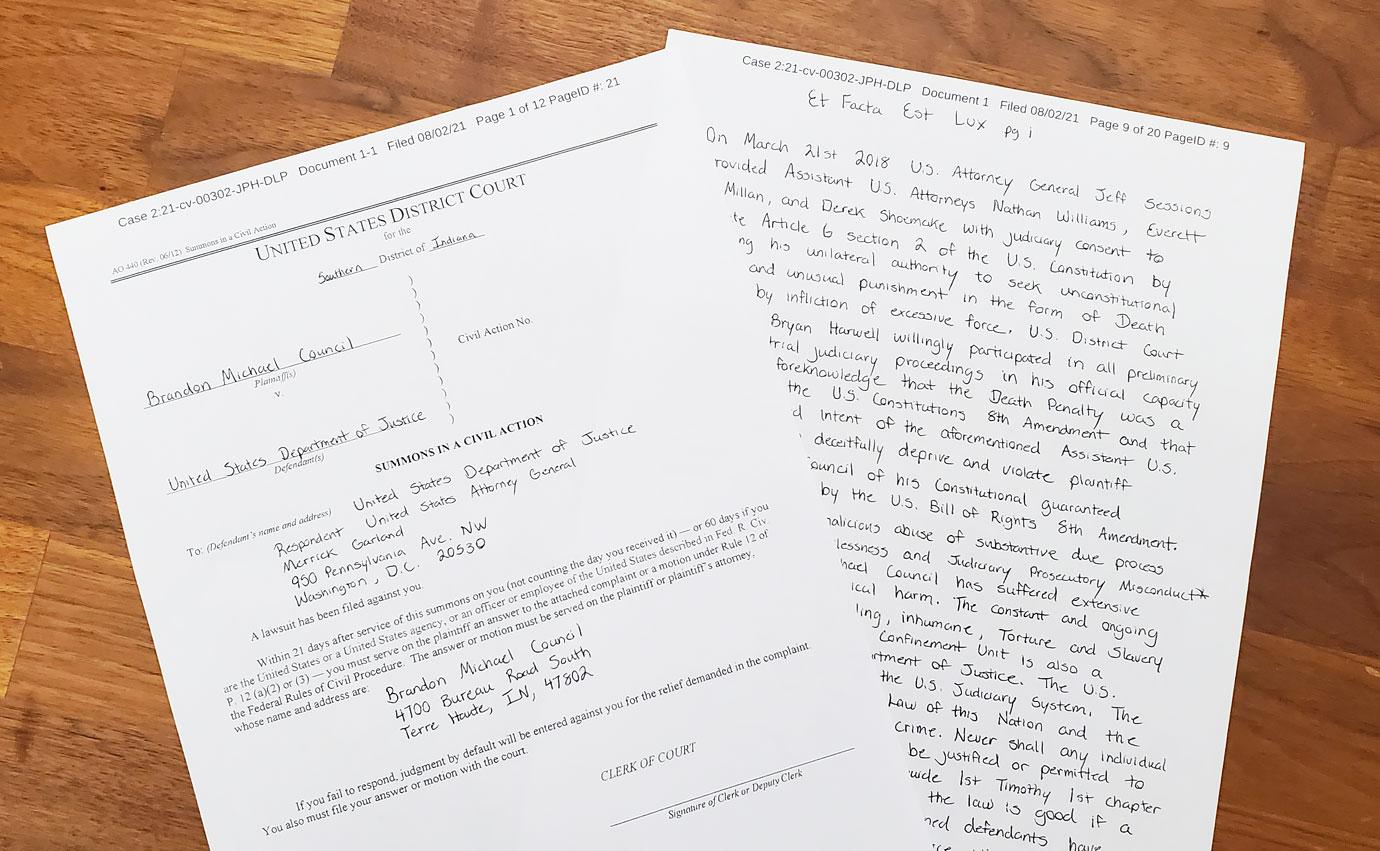 Case 2:21-cv-00302-JPH-DLP Document 1-1 Filed 08/02/21 Page 1 of 12 PageID #: 21
AO 440 (Rev. 06/12) Summons in a Civil Action
UNITED STATES DISTRICT COURT
for the
Southern District of Indiana
Brandon Michael Council
Plaintiff(s)
v.
Civil Action No.
United States Department of Justice
Defendant(s)
SUMMONS IN A CIVIL ACTION
To: (Defendant's name and address) United States Department of Justice
Respondent United States Attorney General
Merrick Garland
950 Pennsylvania Ave. NW
Washington, D.C. 20530
A lawsuit has been filed against you.
Within 21 days after service of this summons on you (not counting the day you received it) — or 60 days if you
are the United States or a United States agency, or an officer or employee of the United States described in Fed. R. Civ.
P. 12 (a)(2) or (3) — you must serve on the plaintiff an answer to the attached complaint or a motion under Rule 12 of
the Federal Rules of Civil Procedure. The answer or motion must be served on the plaintiff or plaintiff's attorney,
whose name and address are:
Brandon Michael Council
4700 Bureau Road South
Terre Haute, IN, 47802
If you fail to respond, judgment by default will be entered against you for the relief demanded in the complaint.
You also must file your answer or motion with the court.
CLERK OF COURT
Signature of Clerk or Deputy Clerk
Case 2:21-cv-00302-JPH-DLP Document 1 Filed 08/02/21 Page 9 of 20 PageID #: 9
Et Facta Est Lux pg i
On March 21st 2018 U.S. Attorney General Jeff Sessions
rovided Assistant U.S. Attorneys Nathan Williams, Everett
Millan, and Derek Shoemake with judiciary consent to
te Article 6 section 2 of the U.S. Constitution by
ng his unilateral authority to seek unconstitutional
and unusual punishment in the form of Death
by infliction of excessive force. U.S. District Court
Bryan Harwell willingly participated in all preliminary
trial judiciary proceedings in his official capacity
foreknowledge that the Death Penalty was a
the U.S. Constitutions 8th Amendment and that
d intent of the aforementioned Assistant U.S.
deceitfully deprive and violate plaintiff
ouncil of his Constitutional guaranteed
by the U.S. Bill of Rights 8th Amendment.
malicious abuse of substantive due process
lessness and Judiciary Prosecutory Misconduct*
hael Council has suffered extensive
ical harm. The constant and ongoing
ling, inhumane, Torture and Slavery
Confinement Unit is also a
rtment of Justice. The U.S.
the U.S. Judiciary System. The
Law of this Nation and the
Crime. Never shall any individual
be justified or permitted to
wide 1st Timothy 1st chapter
the law is good if a
ned defendants have